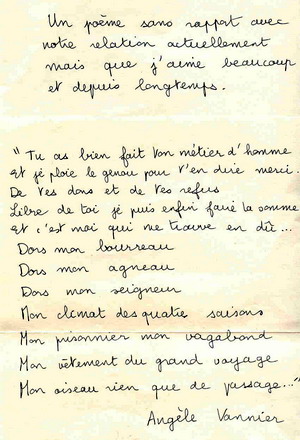 Un poème sans rapport avec
notre relation actuellement
mais que j'aime beaucoup
et depuis longtemps.
" Tu as bien fait ton métier d'homme
Et je ploie le genou pour t'en dire merci.
De tes dons et de tes refus
Libre de toi je puis enfin faire la somme
Et c'est moi qui me trouve en dû...
Dors mon bourreau
Dors mon agneau
Dors mon seigneur
Mon climat des quatre saisons
Mon prisonnier mon vagabond
Mon vêtement du grand voyage
Mon oiseau rien que de passage..."
Angèle Vannier